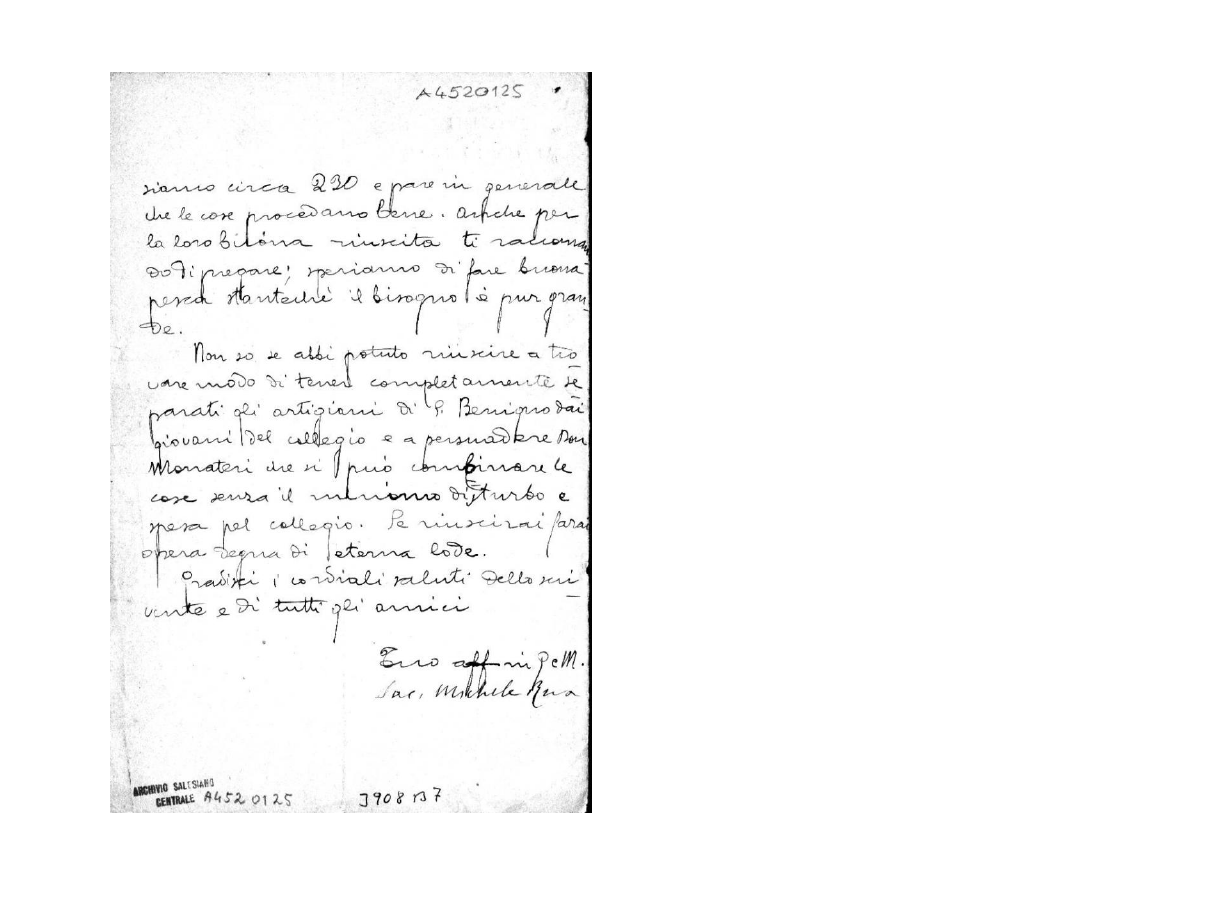 A4520125
siamo circa 230 e pare in generale
che le cose procedano bene. Anche per
la loro buona riuscita ti raccoman
do di pregare; speriamo di fare buona
pesca stanteché il bisogno è pur gran_
de.
Non so se abbi potuto riuscire a tro
vare modo di tener completamente se_
parati gli artigiani di S. Benigno dai
giovani del collegio e a persuadere Don
Monateri che si può combinare le
cose senza il minimo disturbo e
spesa pel collegio. Se riuscirai farai
opera degna di eterna lode.
Gradisci i cordiali saluti dello scri_
vente e di tutti gli amici
Tuo aff in G e M.
Sac. Michele Rua
ARCHIVIO SALESIANO
CENTRALE A452 0125 3908 B7